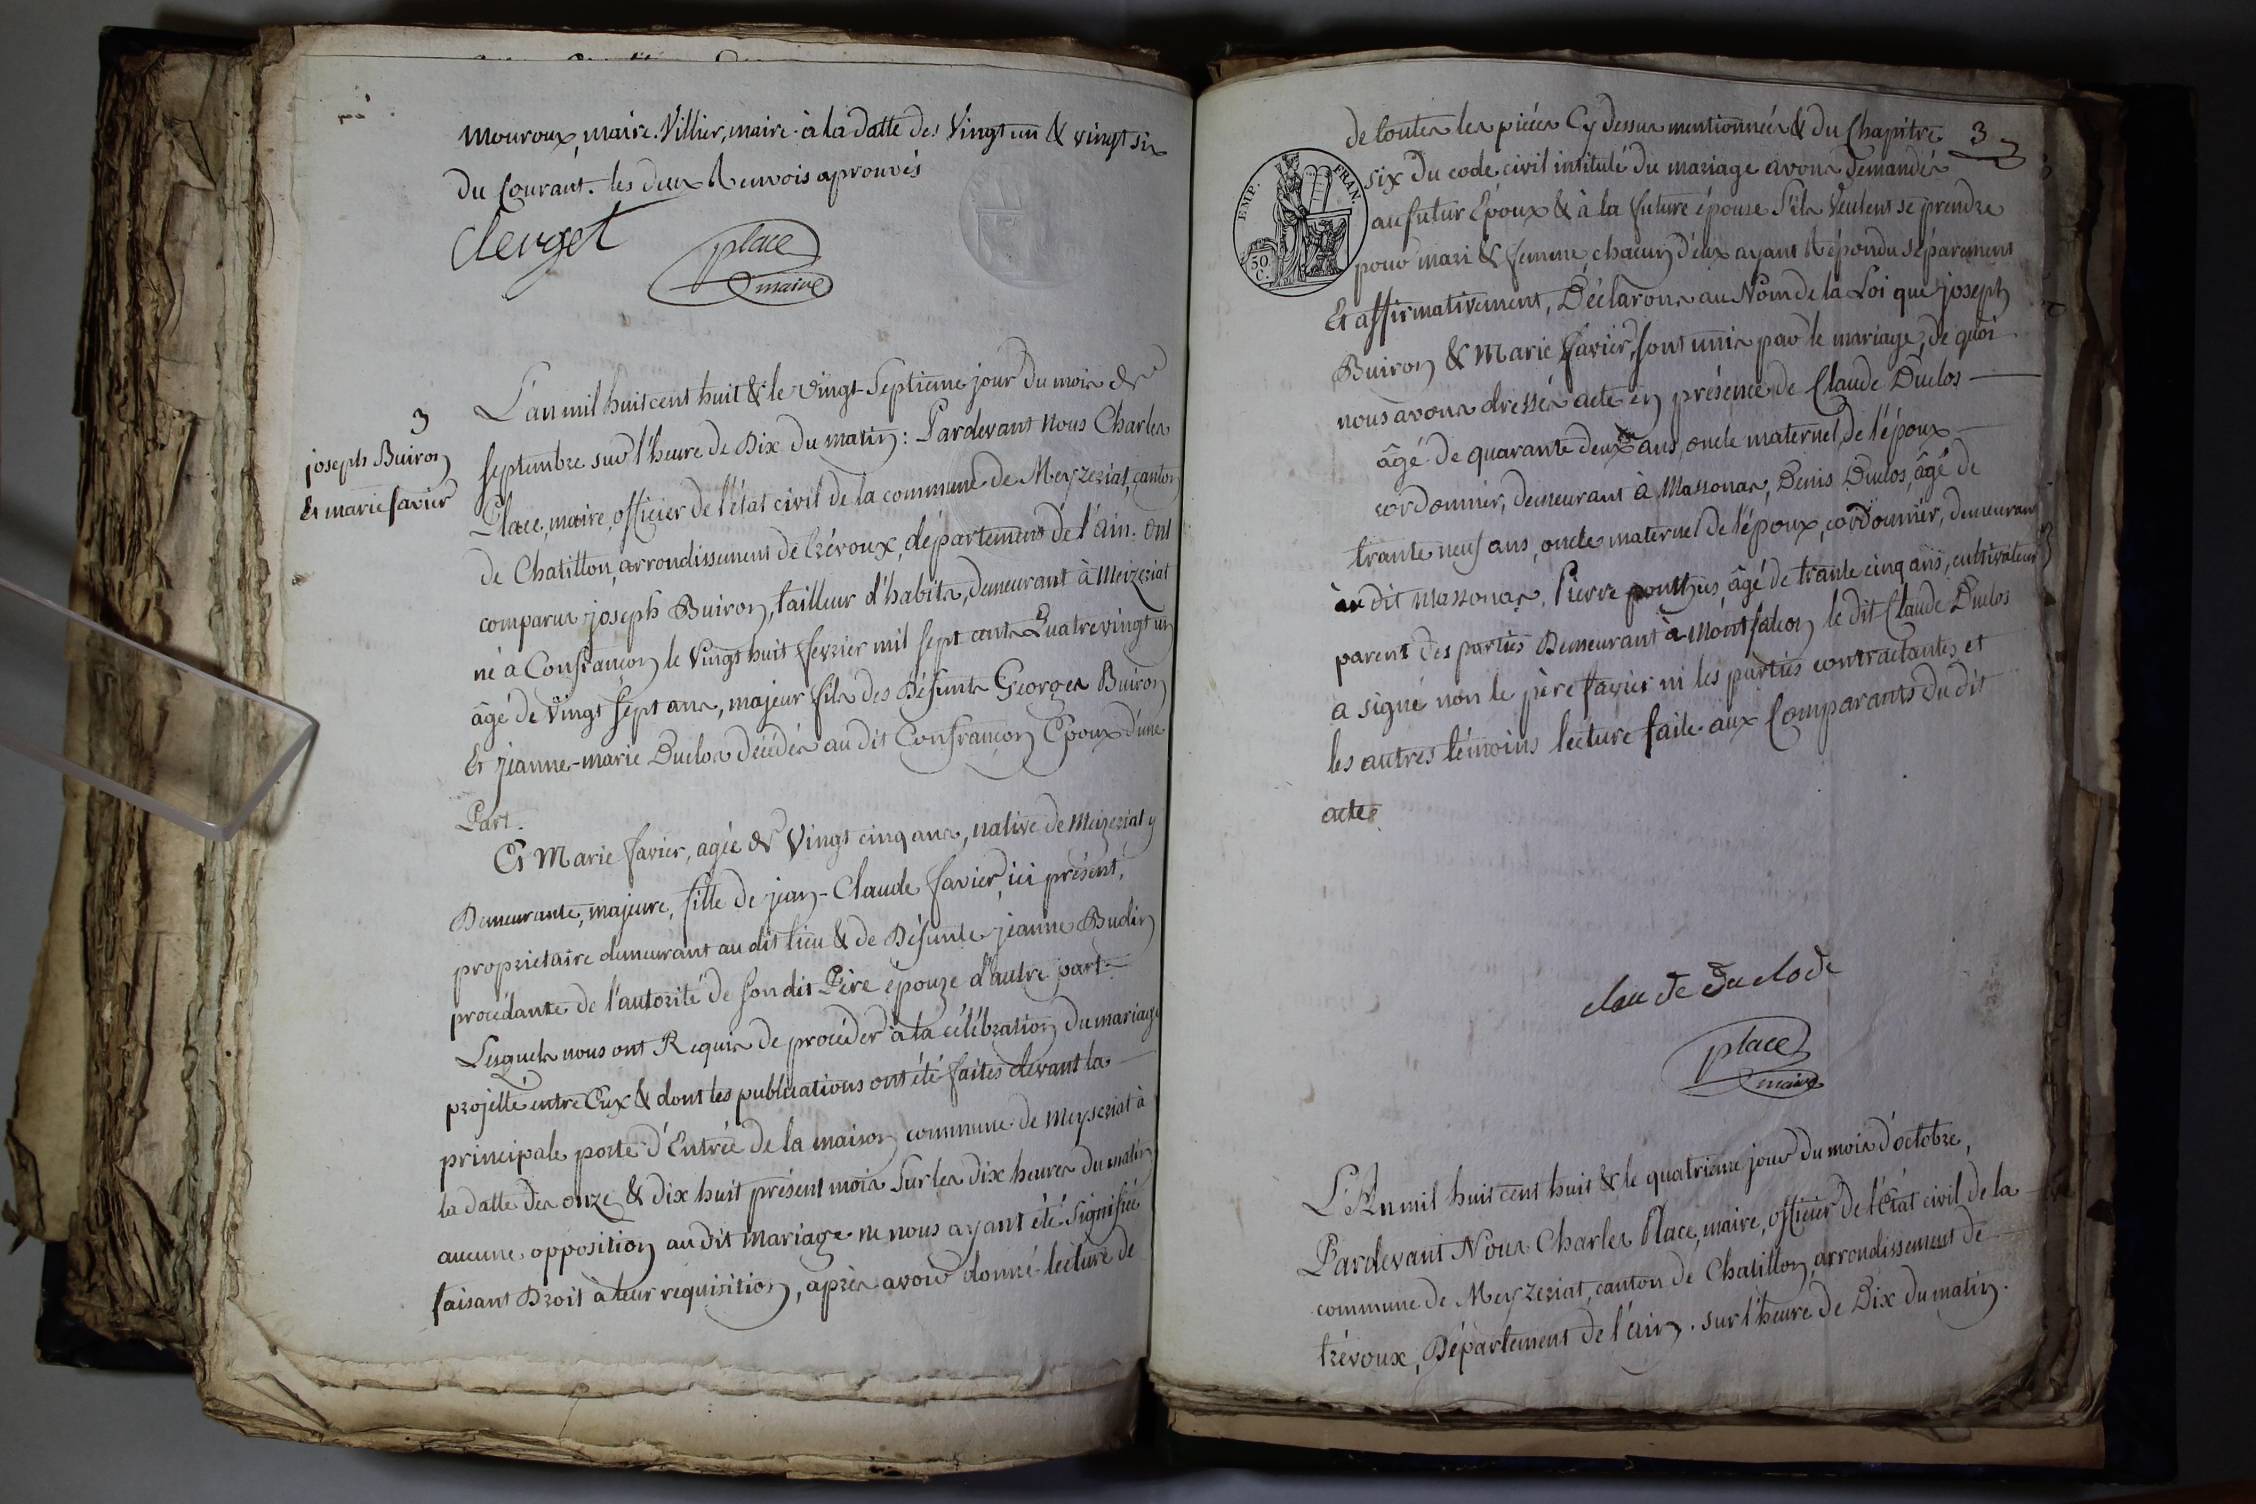 mouroux, maire. Villier, maire. à la datte des Vingt un & vingt six
du Courant. les deux Renvois aprouvés
Clerget
place
maire
3
joseph Buiron
Et marie favier
L'an mil huit cent huit & le vingt-Septieme jour du mois de
septembre sur l'heure de Dix du matin : Pardevant nous Charles
Place, maire, officier de l'état civil de la commune de Meyzeriat, canton
de Chatillon, arrondissement de trévoux, département de l'ain. Ont
comparus joseph Buiron, tailleur d'habits, demeurant à Meizeriat
né a Confrançon le vingt huit fevrier mil sept cent Quatrevingt un
âgé de vingt sept ans, majeur fils des défunts Georges Buiron
Et jeanne-marie Duclos décédés au dit Confrançon Epoux d'une
Part.
Et Marie favier, agée de vingt cinq ans, native de Meizeriat y
Demeurante, majeure, fille de jean-Claude favier, ici présent,
propriétaire demeurant au dit lieu & de Défunte jeanne Budin
procédante de l'autorité de son dit Père épouze d'autre part.
Lesquels nous ont Requis de procéder à la célébration du mariage
projetté entre Eux & dont les publications ont été faites devant la
principale porte d'Entrée de la maison commune de Meyseriat à
la datte des onze & dix huit présent mois Sur les dix heures du matin
aucune opposition au dit Mariage ne nous ayant été Signifiée
faisant Droit à leur requisition, après avoir donné lecture de
3
EMP. FRAN.
50
C.
de toutes les pièces Cy dessus mentionnées & du Chapitre
six du code civil intitulé du mariage avons demandés
au futur Epoux & à la future épouse S'ils veulent se prendre
pour mari & femme, chacun d'eux ayant Répondu séparement
Et affirmativement, Déclarons au Nom de la Loi que joseph
Buiron & Marie favier, sont unis par le mariage, de quoi
nous avons dressés acte en présence de Claude Duclos
âgé de quarante deux ans, oncle maternel de l'époux
cordonnier, demeurant à Massonas, Denis Duclos, âgé de
trante neuf ans, oncle maternel de l'époux, cordonnier, demeurant
au dit massonas, Pierre ponthus, âgé de trante cinq ans, cultivateur
parent des parties Demeurant à Montfalcon le dit Claude Duclos
a signé non le père favier ni les parties contractantes et
les autres témoins lecture faite aux Comparants du dit
acte.
claude duclode
place
maire
L'An mil huit cent huit & le quatrieme jour du mois d'octobre,
Pardevant Nous Charles Place, maire, officier de l'état civil de la
commune de Meyzeriat, canton de Chatillon, arrondissement de
trévoux, Département de l'ain. sur l'heure de Dix du matin.